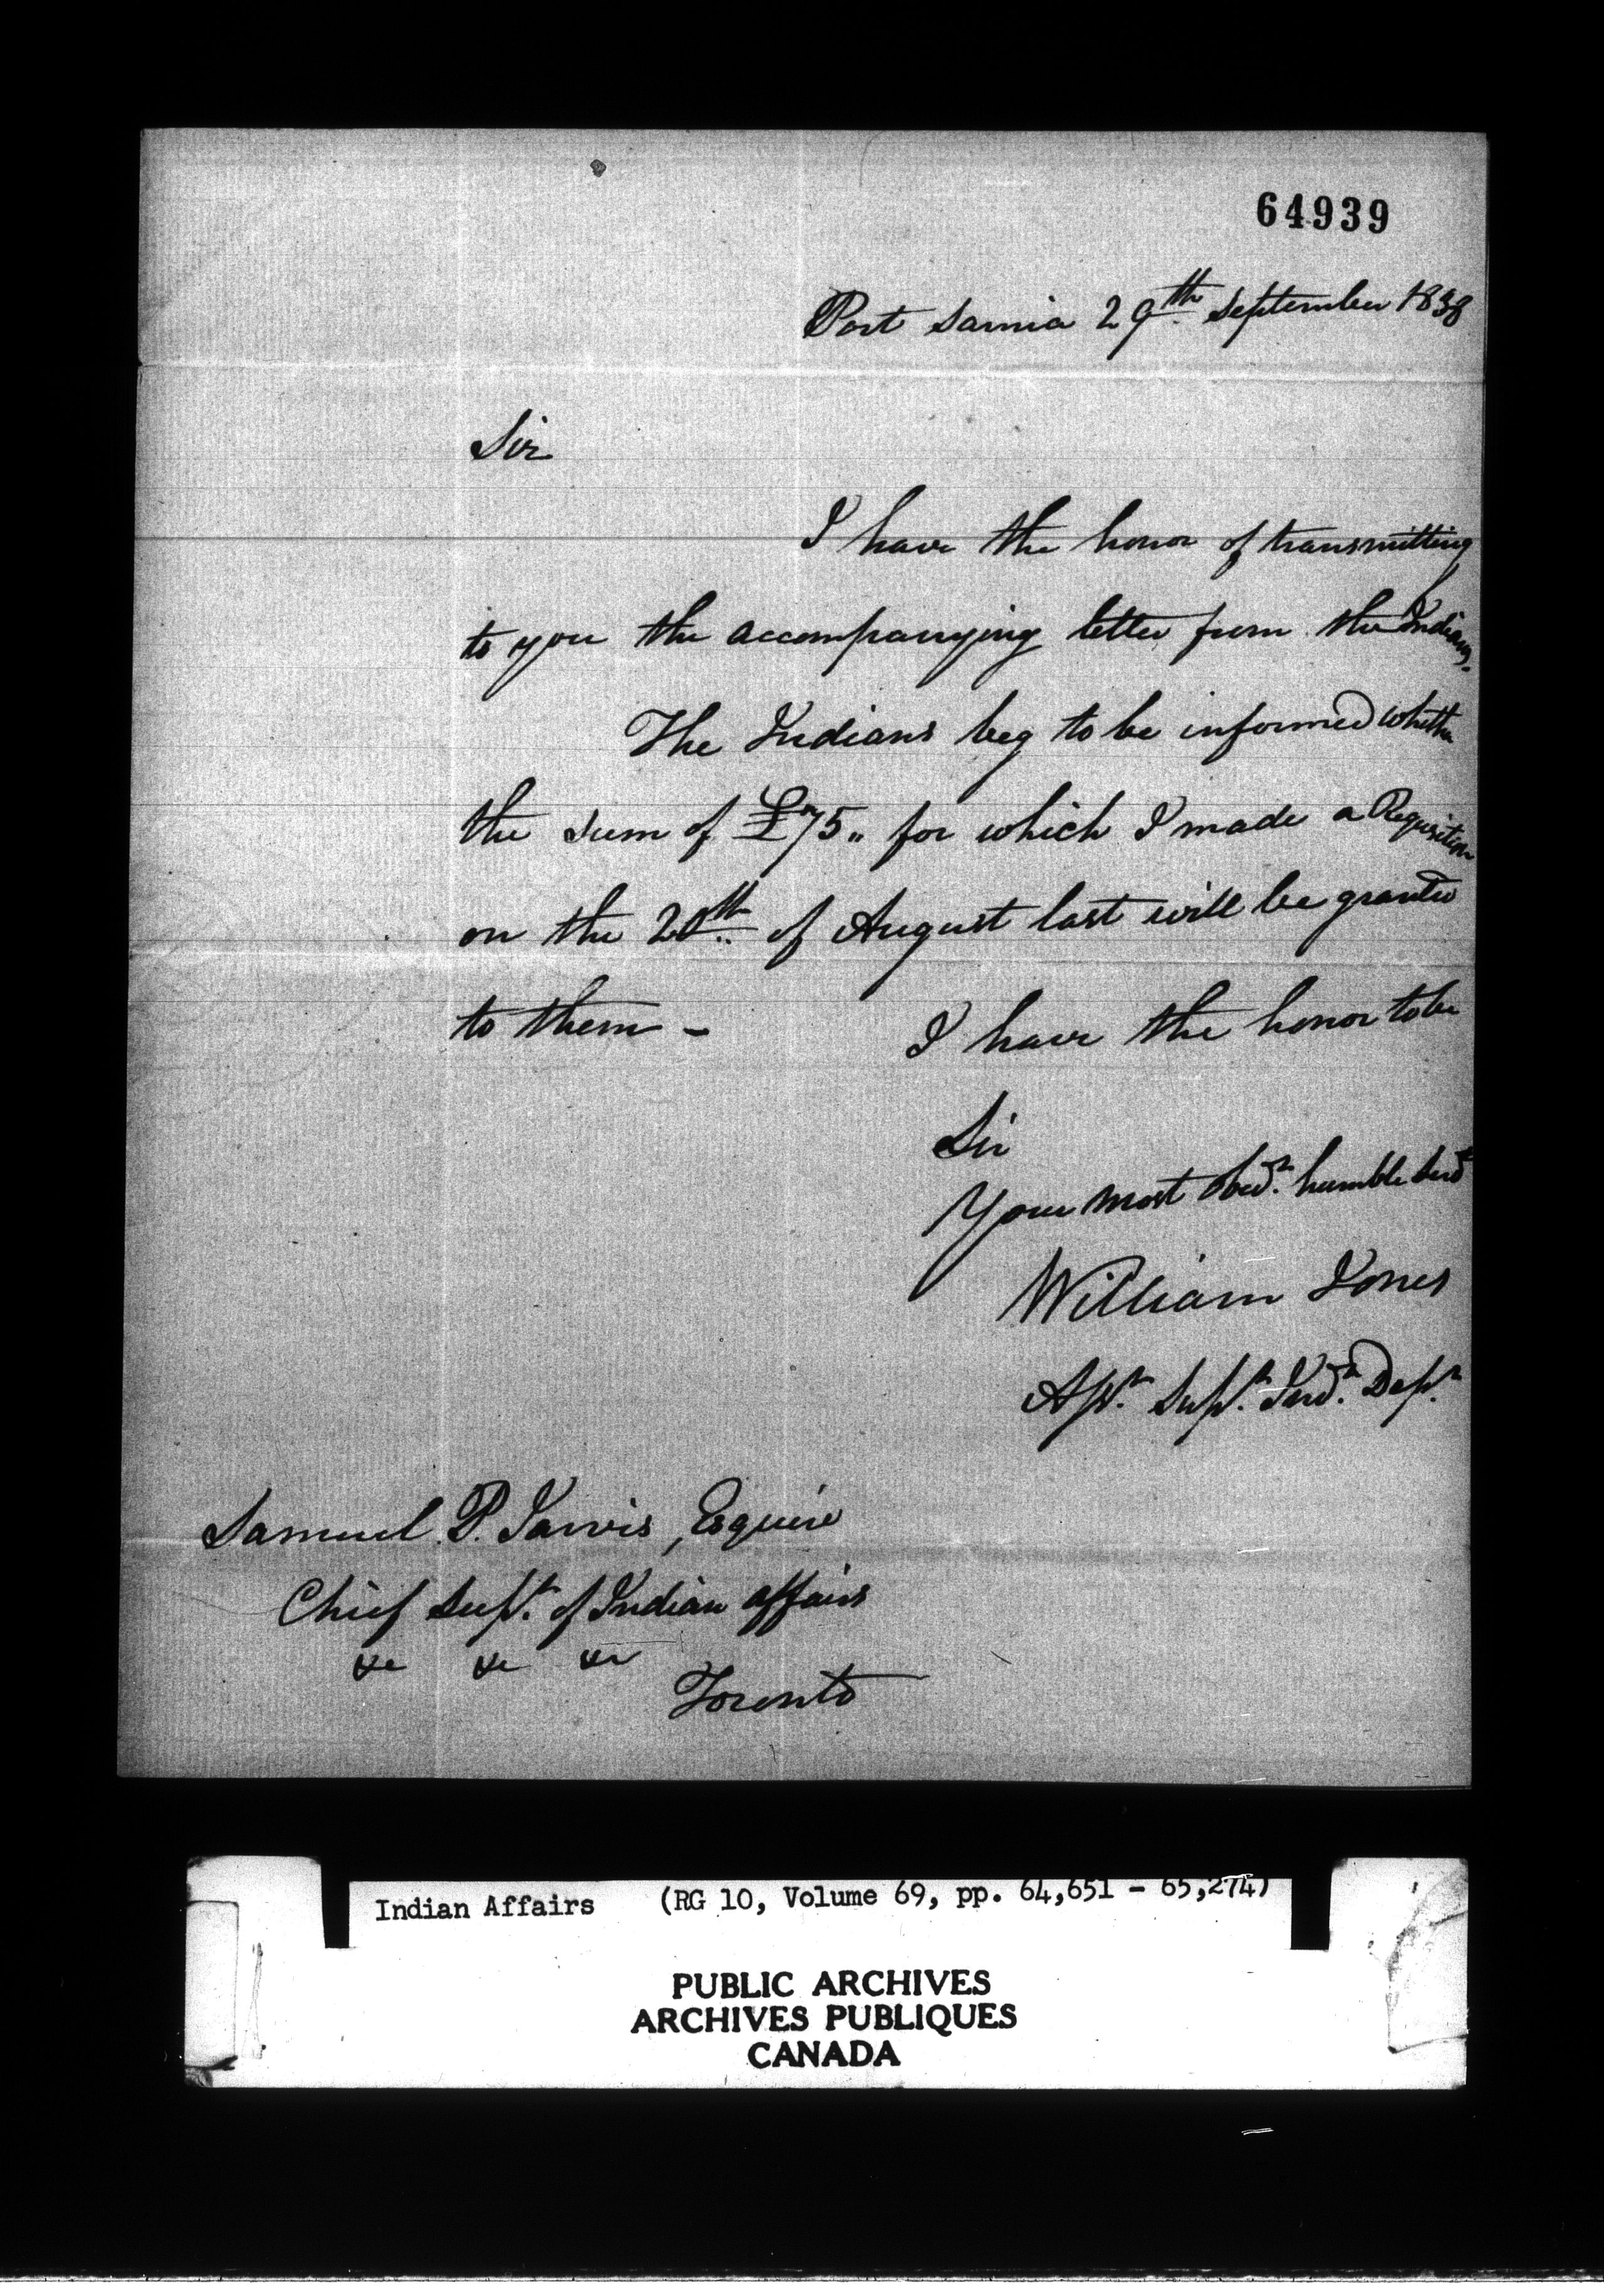 64939
Port Sarnia 29th September 1838
Sir
I have the honor of transmitting
to you the accompanying letter from the Indians.
The Indians beg to be informed whether
the sum of £75„ for which I made a Requisition
on the 20th of August last will be granted
to them –
I have the honor to be
Sir
Your most obedt. humble Servt
William Jones
Asst. Supt. Ind. Dept.
Samuel P. Jarvis, Esquire
Chief Supt. of Indian affairs
&c &c &c
Toronto
Indian Affairs (RG 10, Volume 69, pp. 64,651 - 65,274)
PUBLIC ARCHIVES
ARCHIVES PUBLIQUES
CANADA